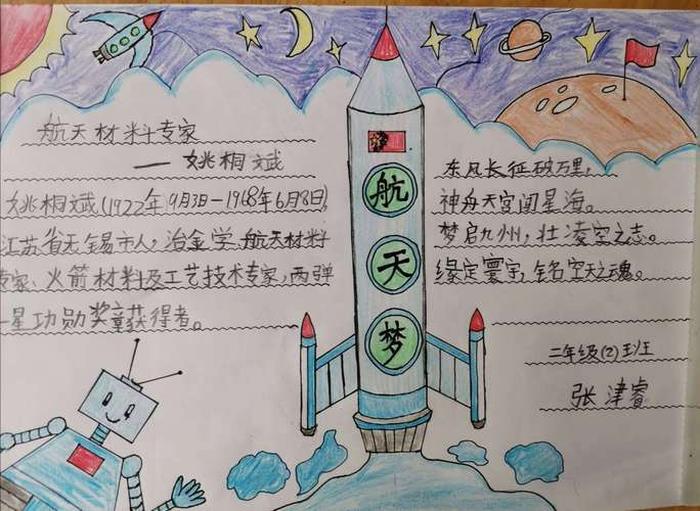 航天材料专家
——姚桐斌
姚桐斌(1922年9月3日-1968年6月8日),
江苏省无锡市人,冶金学、航天材料
专家、火箭材料及工艺技术专家,两弹
一星功勋奖章获得者。
航
天
梦
东风长征破万里,
神舟天宫闯星海。
梦启九州,壮凌空之志。
缘定寰宇,铭空天之魂。
二年级(2)班
张津睿